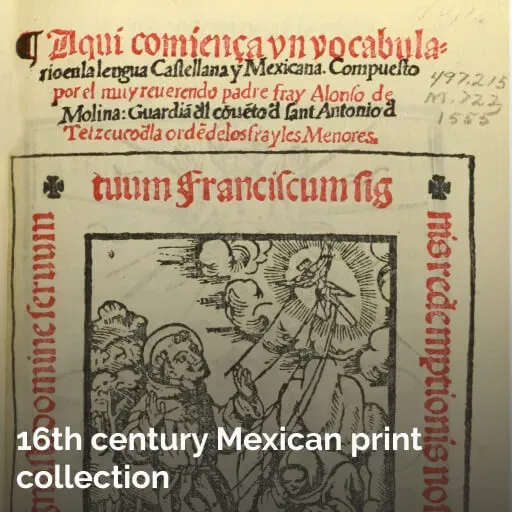 ¶ Aqui comiença vn vocabula=
rio en la lengua Castellana y Mexicana. Compuesto
por el muy reuerendo padre fray Alonso de
Molina: Guardiã dl cõuẽto d sant Antonio d
Tetzcuco dla ordẽ delos frayles Menores.
497.215
M.722
1555
tuum Franciscum sig
nis redemptionis no
domine seruum
16th century Mexican print
collection